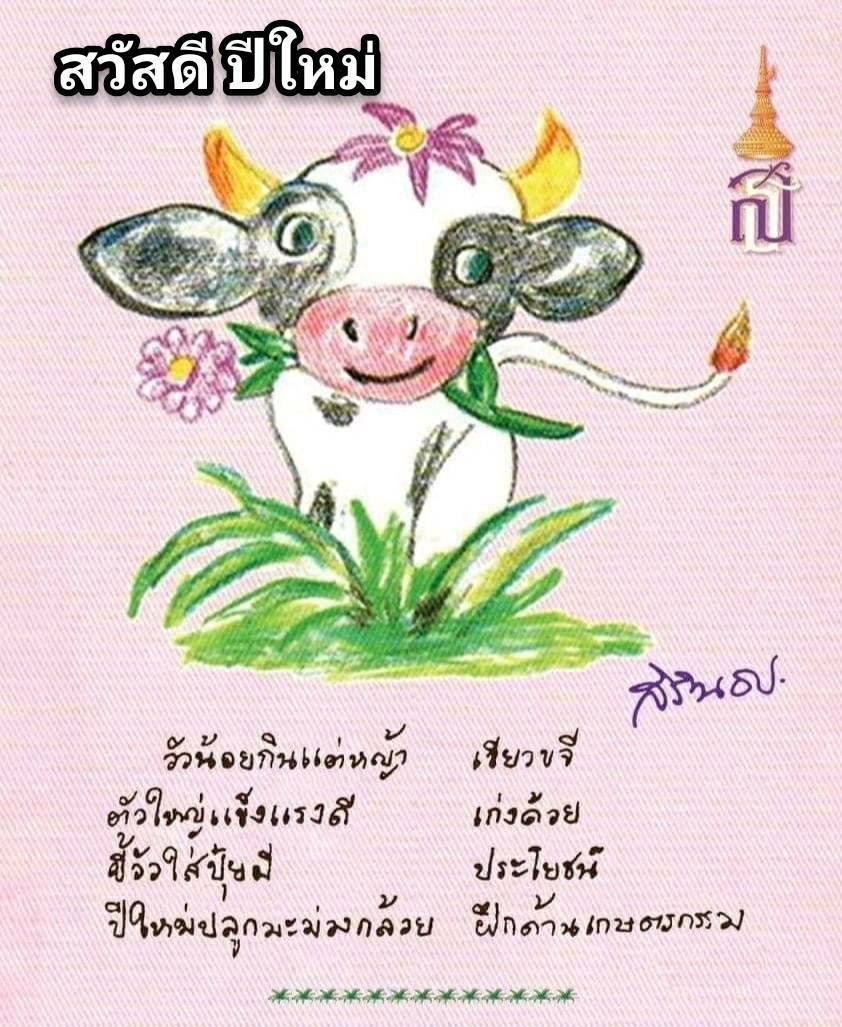 สวัสดี ปีใหม่
ส
สิรินธร.
วัวน้อยกินแต่หญ้า เขียวขจี
ตัวใหญ่แข็งแรงดี เก่งด้วย
ขี้วัวใส่ปุ๋ยมี ประโยชน์
ปีใหม่ปลูกมะม่วงกล้วย ฝึกด้านเกษตรกรรม